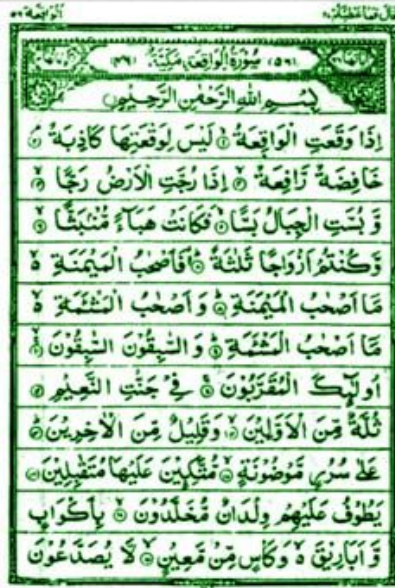 قال فما خطبكم ٢٧
الواقعة ٥٦
(٥٦) سُوْرَةُ الْوَاقِعَةِ مَكِّيَّةٌ (٤٦)
بِسْمِ اللّٰهِ الرَّحْمٰنِ الرَّحِيْمِ
اِذَا وَقَعَتِ الْوَاقِعَةُ ۙ۱ لَيْسَ لِوَقْعَتِهَا كَاذِبَةٌ ۘ۲
خَافِضَةٌ رَّافِعَةٌ ۙ۳ اِذَا رُجَّتِ الْاَرْضُ رَجًّا ۙ۴
وَّ بُسَّتِ الْجِبَالُ بَسًّا ۙ۵ فَكَانَتْ هَبَآءً مُّنْۢبَثًّا ۙ۶
وَّكُنْتُمْ اَزْوَاجًا ثَلٰثَةً ۷ فَاَصْحٰبُ الْمَيْمَنَةِ ۙ
مَاۤ اَصْحٰبُ الْمَيْمَنَةِ ۸ وَ اَصْحٰبُ الْمَشْئَمَةِ ۙ
مَاۤ اَصْحٰبُ الْمَشْئَمَةِ ۹ وَ السّٰبِقُوْنَ السّٰبِقُوْنَ ۱۰
اُولٰٓئِكَ الْمُقَرَّبُوْنَ ۱۱ فِيْ جَنّٰتِ النَّعِيْمِ ۱۲
ثُلَّةٌ مِّنَ الْاَوَّلِيْنَ ۱۳ وَقَلِيْلٌ مِّنَ الْاٰخِرِيْنَ ۱۴
عَلٰى سُرُرٍ مَّوْضُوْنَةٍ ۱۵ مُّتَّكِـِٕيْنَ عَلَيْهَا مُتَقٰبِلِيْنَ ۱۶
يَطُوْفُ عَلَيْهِمْ وِلْدَانٌ مُّخَلَّدُوْنَ ۱۷ بِاَكْوَابٍ
وَّ اَبَارِيْقَ ۙ وَكَاْسٍ مِّنْ مَّعِيْنٍ ۱۸ لَّا يُصَدَّعُوْنَ